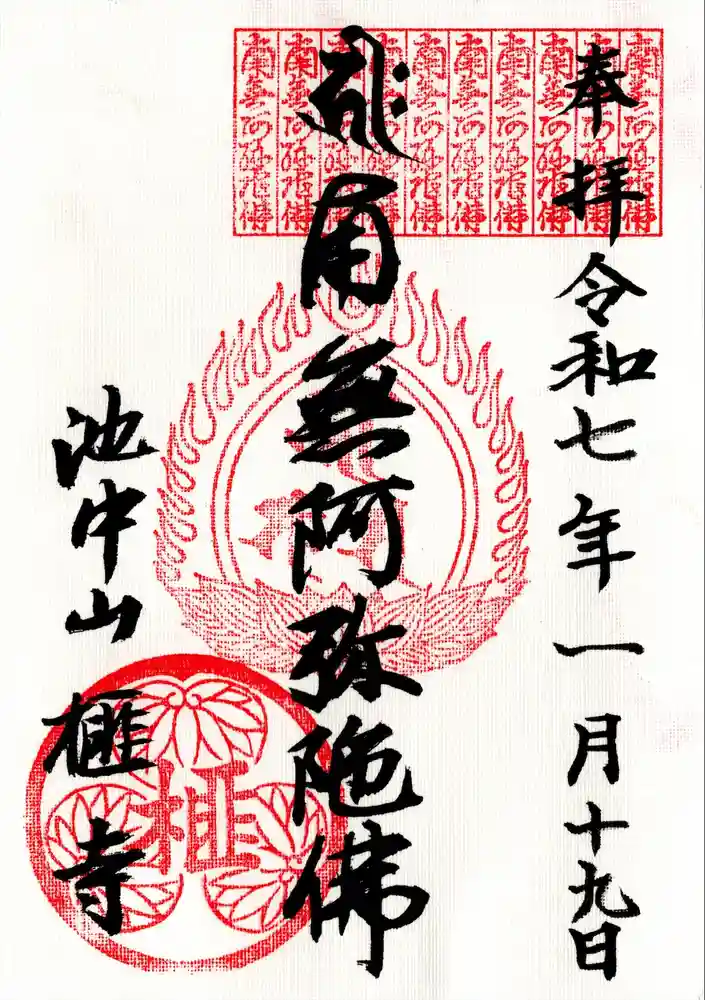 奉拝 令和七年一月十九日
𑖮𑖿𑖨𑖱𑖾
南無阿弥陀佛
池中山 榧寺
南無阿弥陀佛
南無阿弥陀佛
南無阿弥陀佛
南無阿弥陀佛
南無阿弥陀佛
南無阿弥陀佛
南無阿弥陀佛
南無阿弥陀佛
南無阿弥陀佛
南無阿弥陀佛
榧